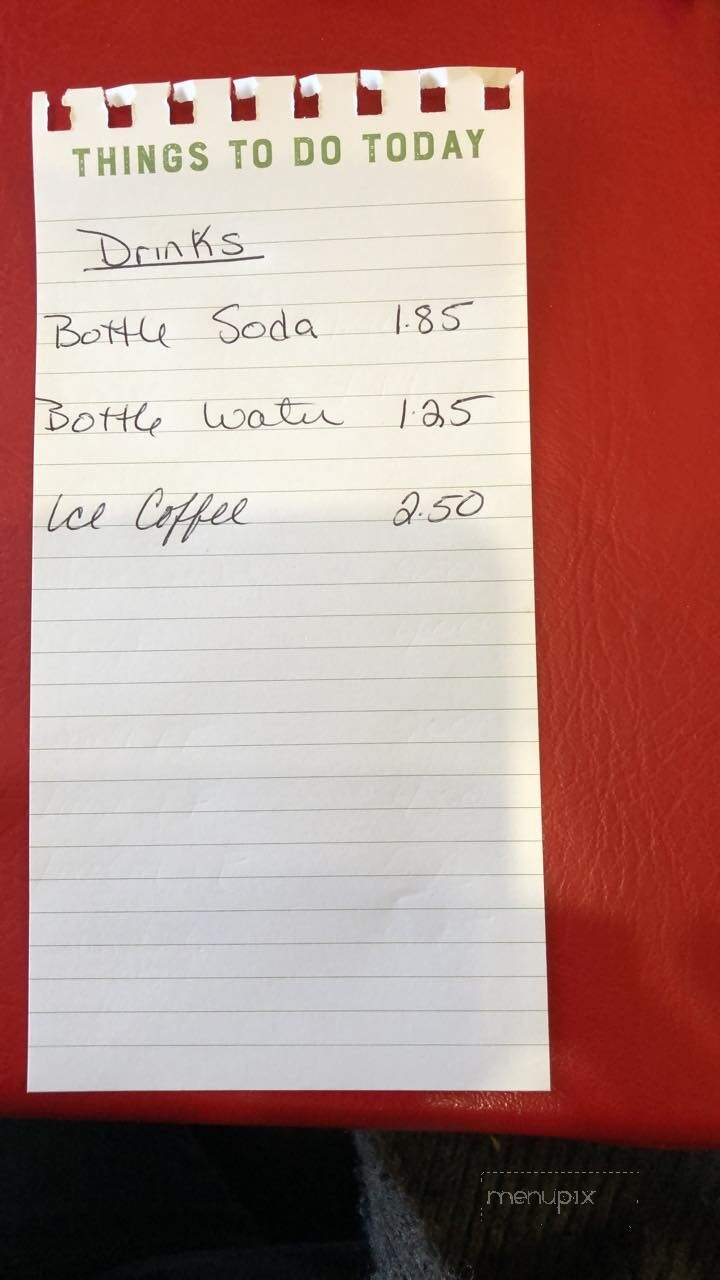 THINGS TO DO TODAY
Drinks
Bottle Soda 1.85
Bottle Water 1.25
Ice Coffee 2.50
menupix